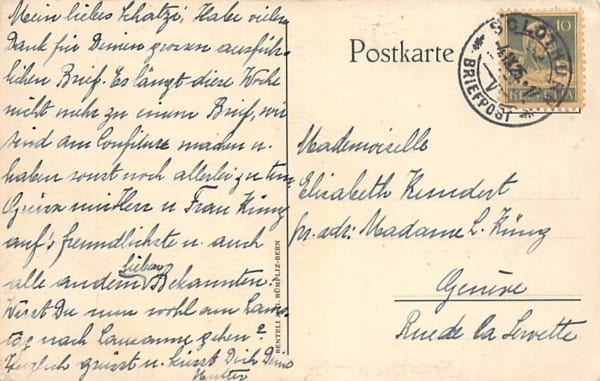 Mein liebes Schatzi, Habe vielen
Dank für Deinen grossen ausführ-
lichen Brief. Es längt diese Woche
nicht mehr zu einem Brief, wir
sind am Confiture machen u.
haben sonst noch allerlei zu tun.
Grüsse mir Herr u. Frau Künz
auf's freundlichste u. auch
alle andern lieben Bekannten.
Wirst Du nun wohl am Sams-
tag nach Lausanne gehen?
Herzlich grüsst u. küsst Dich Deine
Mutter
Postkarte
10
HELVETIA
SOLOTHURN
BRIEFPOST
BENTELI A.G. BÜMPLIZ-BERN
Mademoiselle
Elisabeth Kundert
pr. adr: Madame L. Künz
Genève
Rue de la Servette